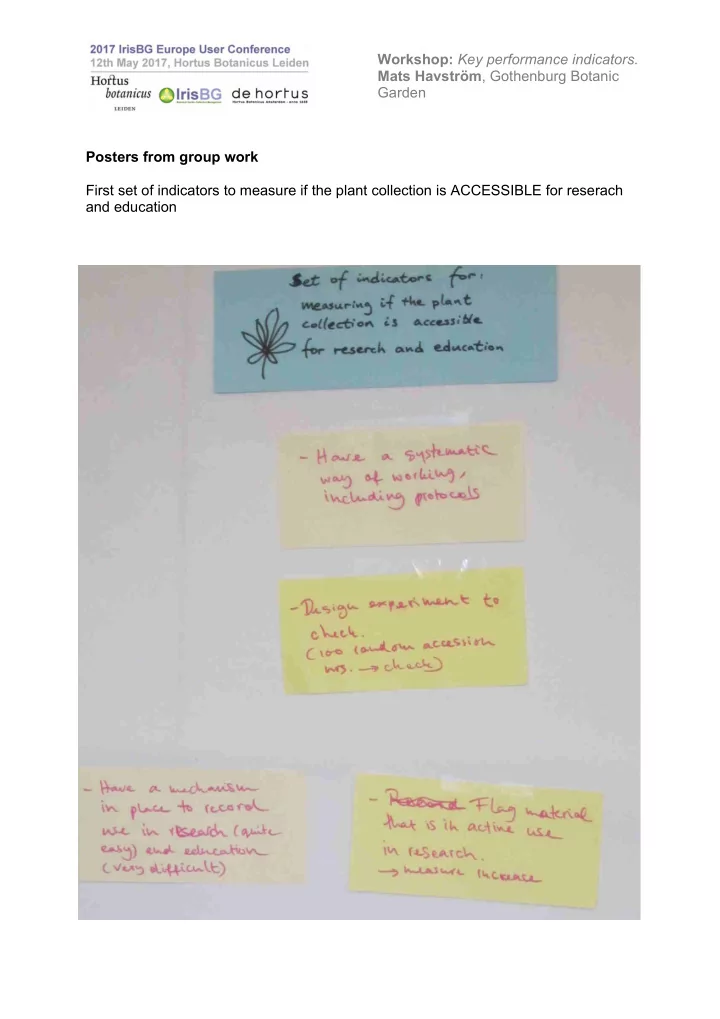 2017 IrisBG Europe User Conference
12th May 2017, Hortus Botanicus Leiden
Hortus
botanicus
LEIDEN
IrisBG
de hortus
Hortus Botanicus Amsterdam - anno 1638
Workshop: Key performance indicators.
Mats Havström, Gothenburg Botanic
Garden
Posters from group work
First set of indicators to measure if the plant collection is ACCESSIBLE for reserach
and education
Set of indicators for:
measuring if the plant
collection is accessible
for reserch and education
- Have a systematic
way of working,
including protocols
- Design experiment to
check.
(100 random accession
nrs. → check)
- Have a mechanism
in place to record
use in research (quite
easy) and education
(very difficult)
- Record Flag material
that is in active use
in research.
→ measure increase